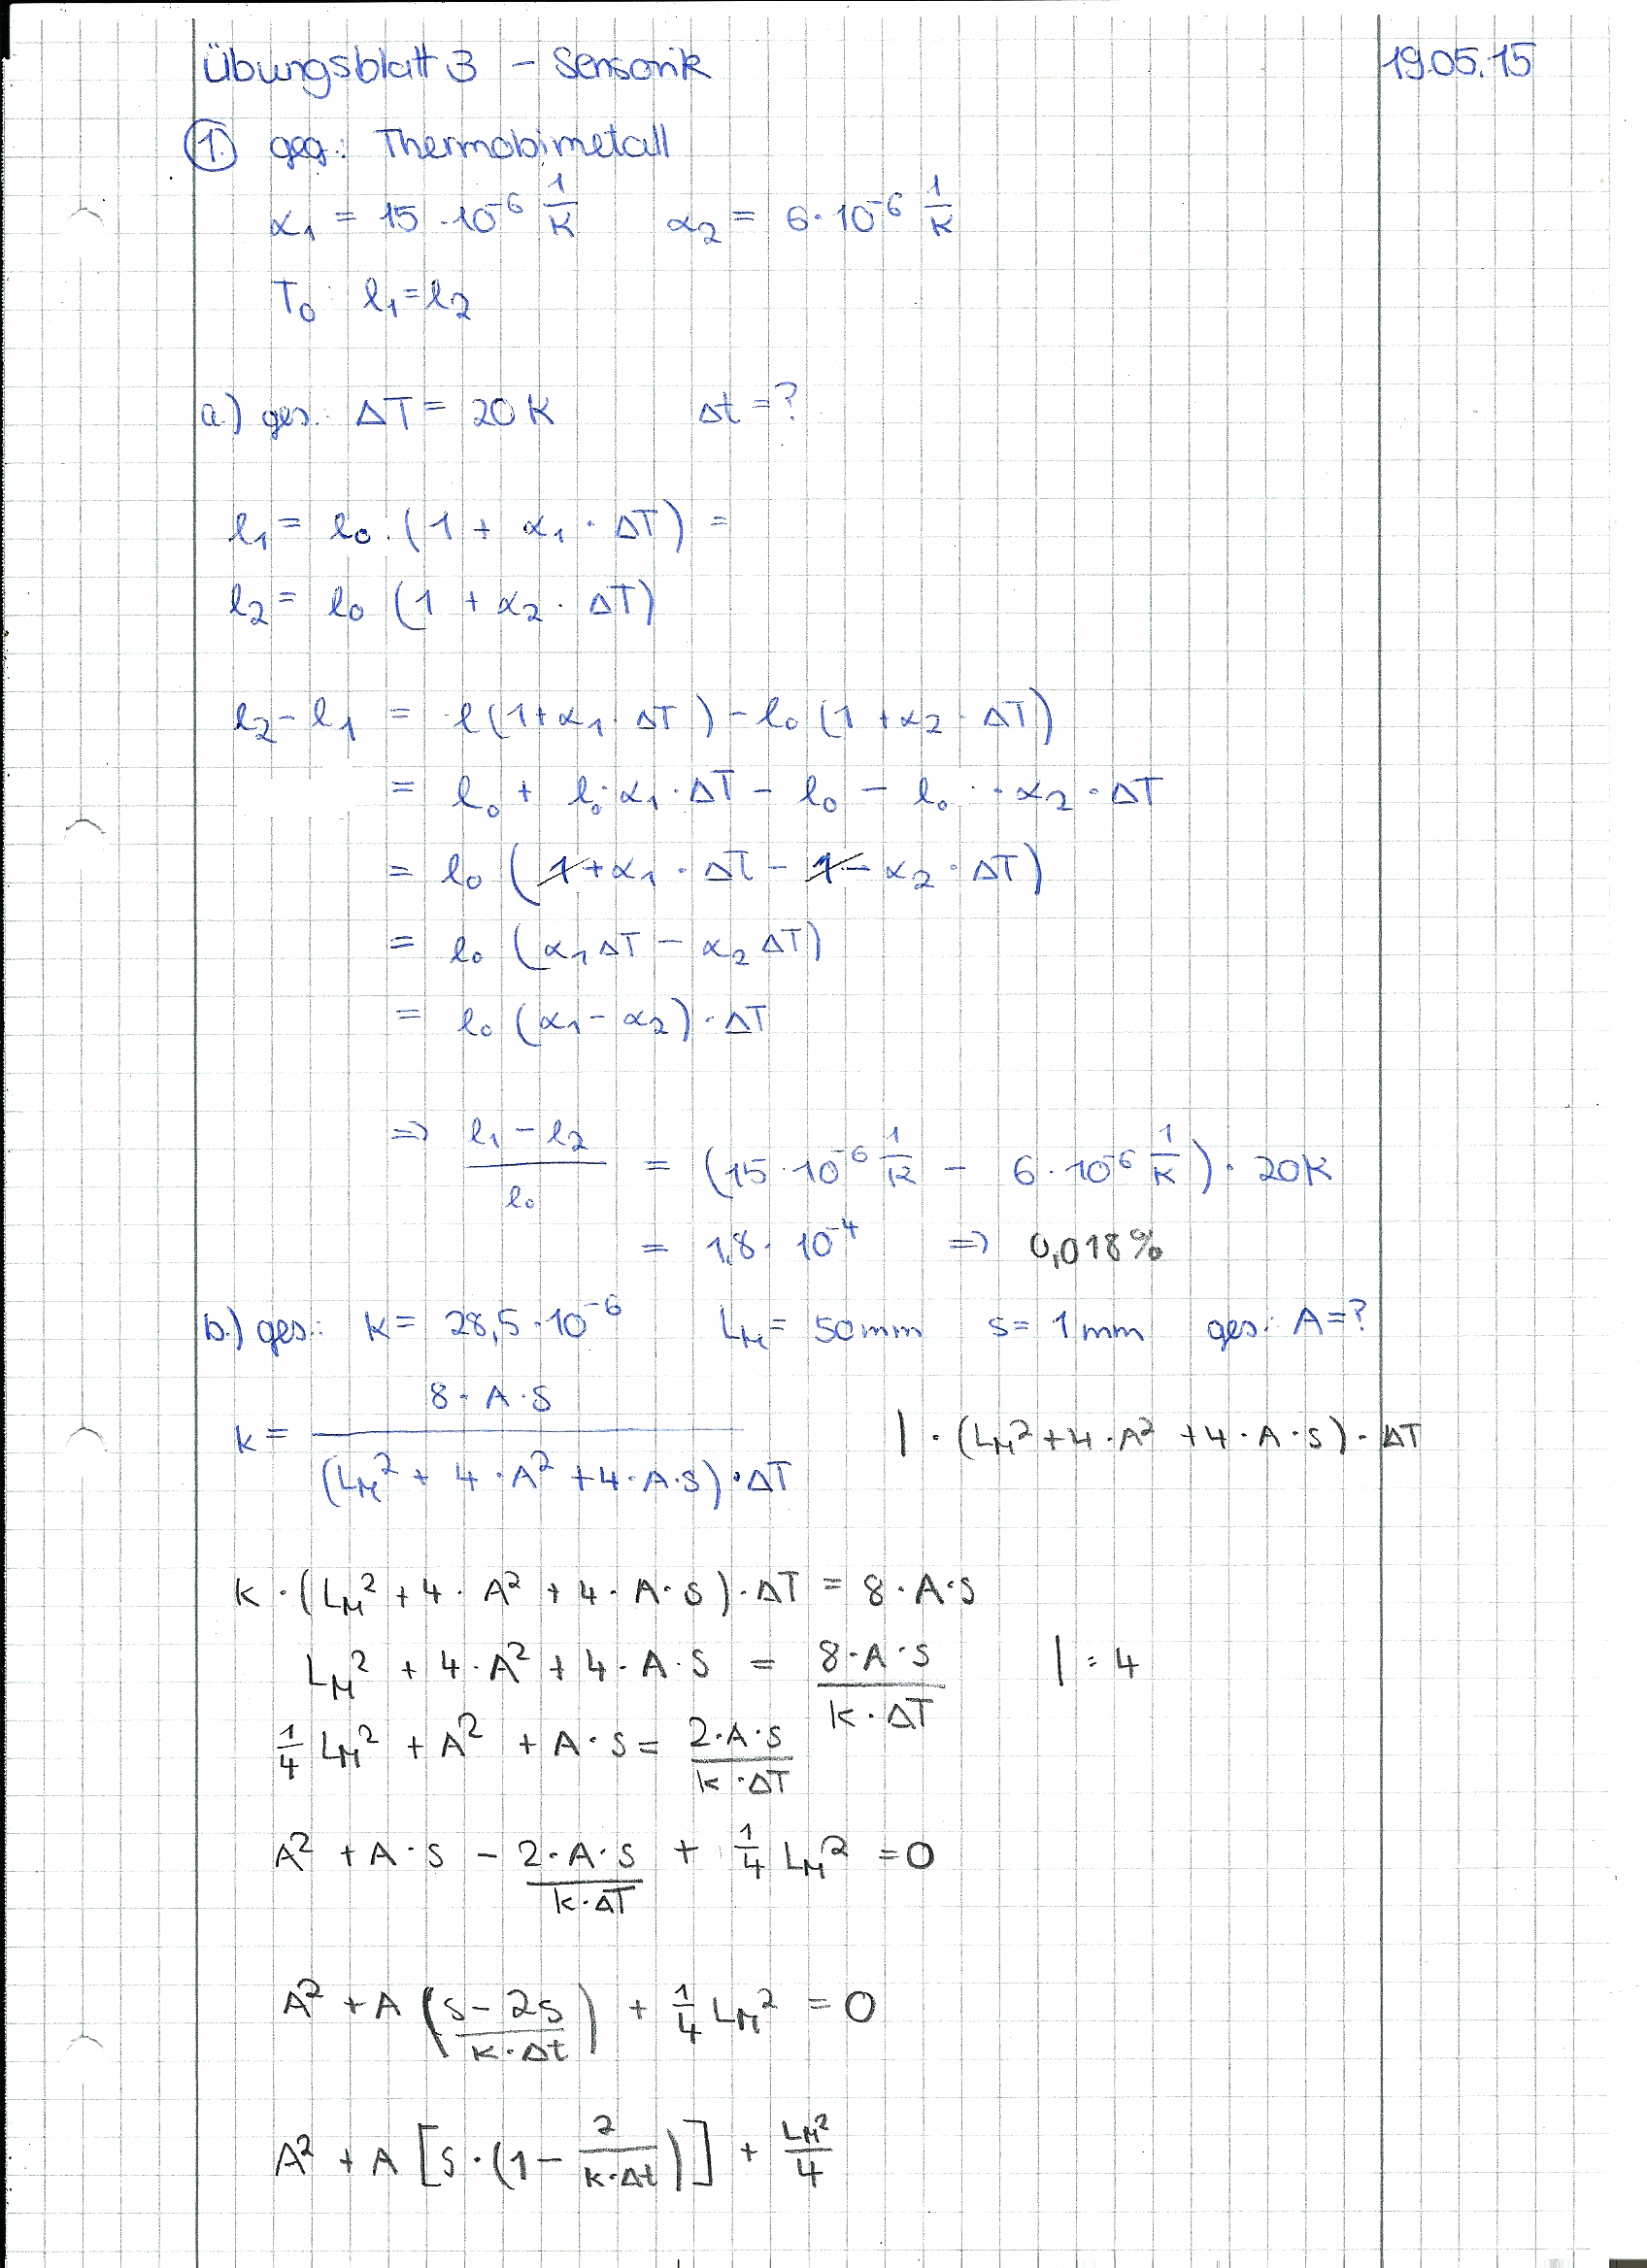 Übungsblatt 3 - Sensorik 19.05.15
1. geg.: Thermobimetall
α₁ = 15 · 10⁻⁶ 1/K α₂ = 6 · 10⁻⁶ 1/K
T₀ l₁ = l₂
a.) ges.: ΔT = 20 K Δt = ?
l₁ = l₀ · (1 + α₁ · ΔT) =
l₂ = l₀ (1 + α₂ · ΔT)
l₂ - l₁ = l (1 + α₁ · ΔT) - l₀ (1 + α₂ · ΔT)
= l₀ + l₀ · α₁ · ΔT - l₀ - l₀ · α₂ · ΔT
= l₀ (1 + α₁ · ΔT - 1 - α₂ · ΔT)
= l₀ (α₁ ΔT - α₂ ΔT)
= l₀ (α₁ - α₂) · ΔT
⇒ (l₁ - l₂)/l₀ = (15 · 10⁻⁶ 1/K - 6 · 10⁻⁶ 1/K) · 20K
= 1,8 · 10⁻⁴ ⇒ 0,018%
b.) ges.: K = 28,5 · 10⁻⁶ L_M = 50mm s = 1mm ges.: A = ?
k = (8 · A · s)/((L_M² + 4 · A² + 4 · A · s) · ΔT) | · (L_M² + 4 · A² + 4 · A · s) · ΔT
K · (L_M² + 4 · A² + 4 · A · s) · ΔT = 8 · A · s
L_M² + 4 · A² + 4 · A · s = (8 · A · s)/(k · ΔT) | : 4
1/4 L_M² + A² + A · s = (2 · A · s)/(k · ΔT)
A² + A · s - (2 · A · s)/(k · ΔT) + 1/4 L_M² = 0
A² + A ((s - 2s)/(k · Δt)) + 1/4 L_M² = 0
A² + A [s · (1 - 2/(k · Δt))] + L_M²/4